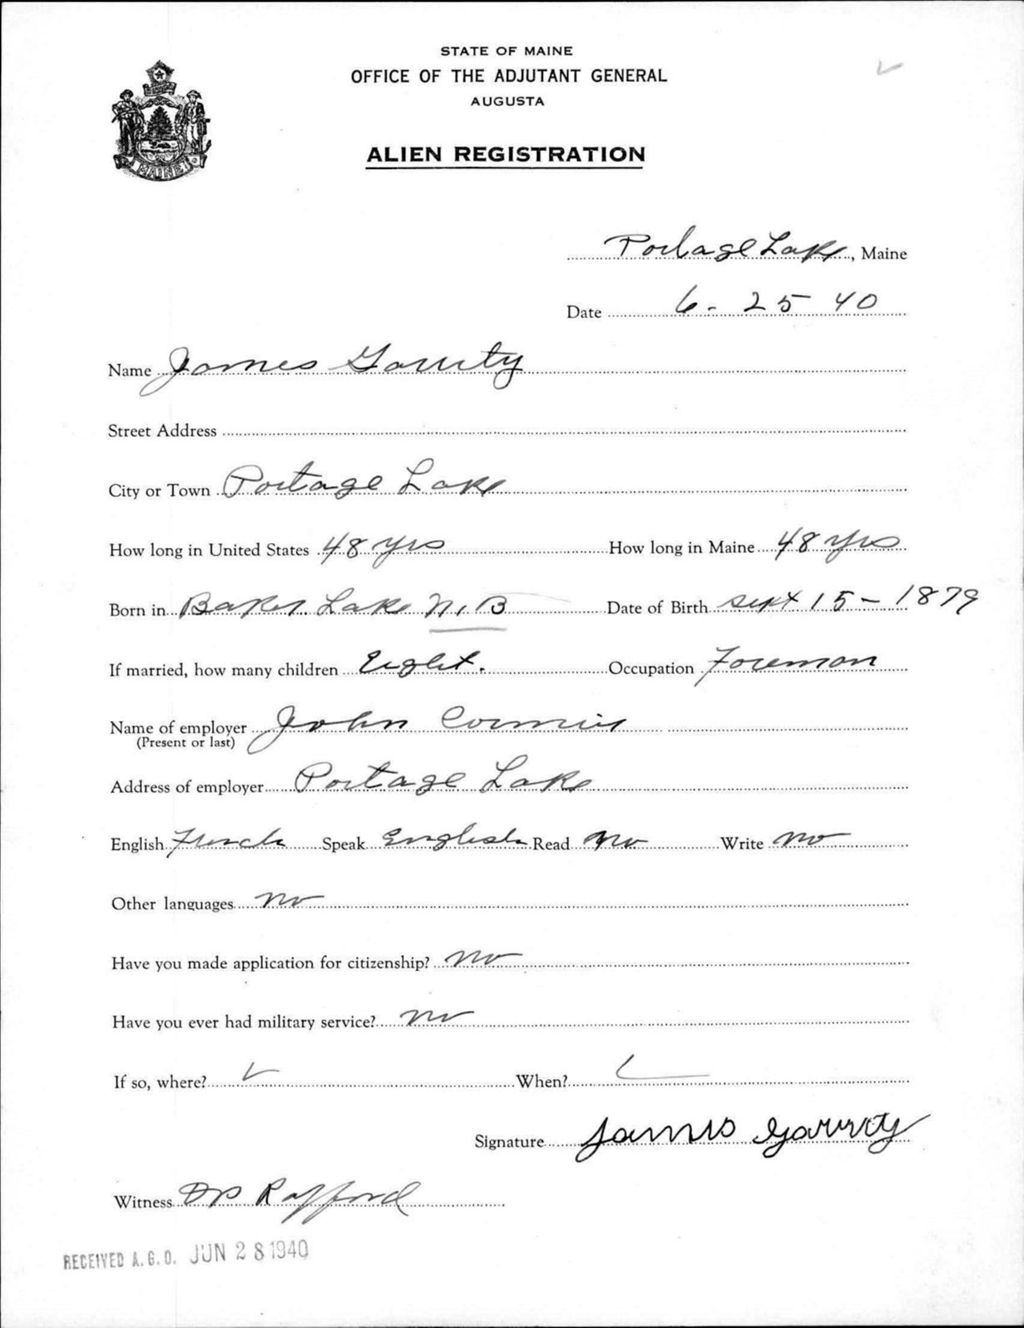 STATE OF MAINE
OFFICE OF THE ADJUTANT GENERAL
AUGUSTA
ALIEN REGISTRATION
Portage Lake, Maine
Date 6-25 40
Name James Garrity
Street Address
City or Town Portage Lake
How long in United States 48 yrs How long in Maine 48 yrs
Born in Baker Lake N.B Date of Birth Sept 15-1879
If married, how many children Eight. Occupation Foreman
Name of employer John Cormier
(Present or last)
Address of employer Portage Lake
English French Speak English Read No Write No
Other languages No
Have you made application for citizenship? No
Have you ever had military service? No
If so, where? When?
Signature James Garrity
Witness Rafford
RECEIVED A.G.O. JUN 28 1940
MAINE